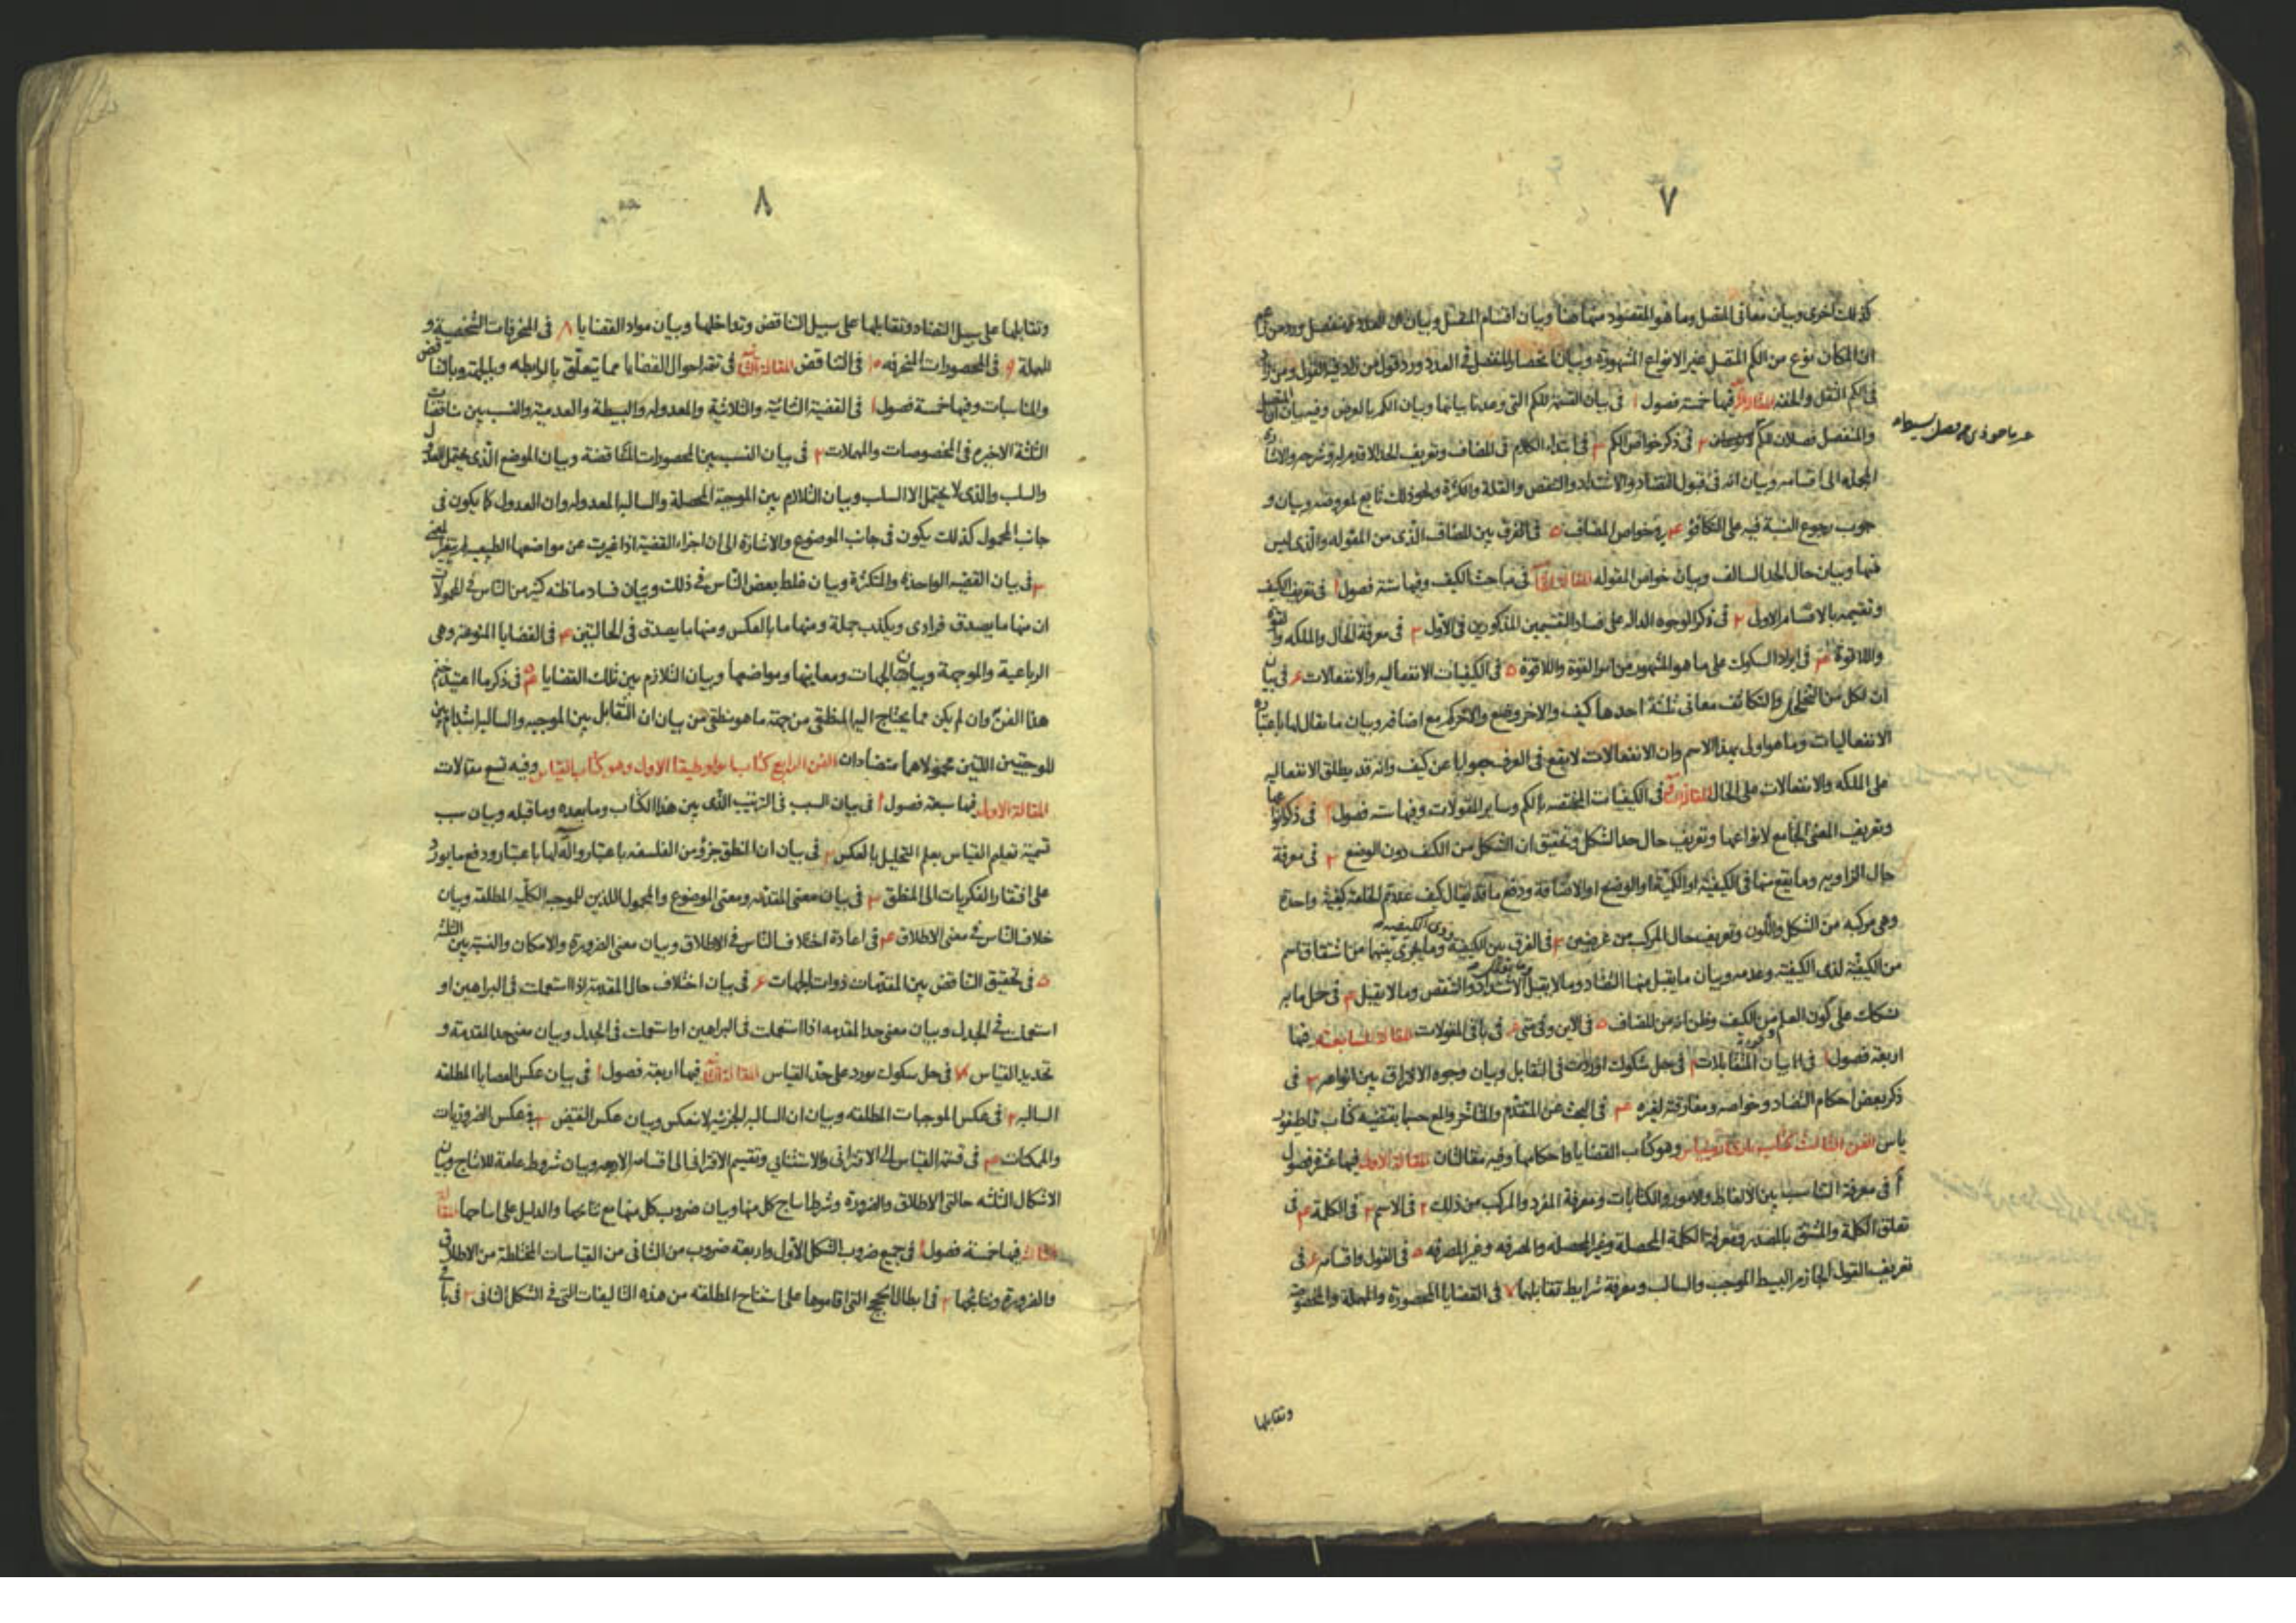 ٧
كذلك اخرى وبيان معانى المتصل وما هو المقصود منها هنا وبيان اقسام المتصل وبيان ان العدد
ان المكان نوع من الكم المتصل غير الانواع المشهورة وبيان انحصار المنفصل فى العدد ورد قول من زاد فيه القول ومن زاد
فى الكم الثقل والخفة فيها خمسة فصول ا فى بيان القسمة للكم التى وعدنا بيانها وبيان الكم بالعرض وفيه بيان ان المتصل
والمنفصل فصلان للكم ٢ فى ذكر خواص الكم ٣ فى ابتداء الكلام فى المضاف وتعريف الحد الاقدم له وشرحه والاشارة
المجملة الى اقسامه وبيان انه فى قبول التضاد والاشتداد والتنقص والقلة والكثرة ونحو ذلك تابع لمعروضه وبيان و
جوب رجوع النسبة فيه على التكافؤ ٤ فى خواص المضاف ٥ فى الفرق بين المضاف الذى من المقولة والذى ليس
منها وبيان حال الحد السالف وبيان خواص المقوله المقالة الخامسة فى مباحث الكيف وفيها ستة فصول ا فى تعريف الكيف
وتقسيمه بالاقسام الاول ٢ فى ذكر الوجوه الدالة على فساد التقسيمين المذكورين فى الاول ٣ فى معرفة الحال والملكه والقوة
واللاقوة ٤ فى ايراد الشكوك على ما هو المشهور من امر القوة واللاقوة ٥ فى الكيفيات الانفعاليه والانفعالات ٦ فى بيان
ان لكل من التخلخل والتكاثف معانى ثلثة احدها كيف والاخر وضع والاخر كم مع اضافة وبيان ما يقال لها باعتباره
الانفعاليات وما هو اولى بهذا الاسم وان الانفعالات لا يقع فى العرف جوابا عن كيف وانه قد يطلق الانفعاليه
على الملكه والانفعالات على الحال فى الكيفيات المختصة بالكم وساير المقولات وفيها ستة فصول ا فى ذكر انواعها
وتعريف المعنى الجامع لانواعها وتعريف حال حد الشكل وتحقيق ان الشكل من الكيف دون الوضع ٢ فى معرفة
حال الزاويه وما يقع منها فى الكيفية او الكمية او الوضع او الاضافة ودفع ما قد يقال كيف عددتم الخلقة كيفية واحدة
وهى مركبه من الشكل واللون وتعريف حال المركب من عرضين ٣ فى الفرق بين الكيفية وذوى الكيفية وما يجرى بينهما من اشتقاق اسم
من الكيفية لذى الكيفية وعدمه وبيان ما يقبل منها التضاد وما لا يقبل وما يقبل الاشتداد والتنقص وما لا يقبل ٤ فى حل ما به
تشكك على كون العلم من الكيف وظن انه من المضاف ٥ فى الاين وفى متى ٦ فى باقى المقولات المقالة السابعة وفيها
اربعة فصول ا فى بيان المتقابلات ٢ فى حل شكوك اوردت فى التقابل وبيان وجوه الافتراق بين انواعه ٣ فى
ذكر بعض احكام التضاد وخواصه ومفارقته لغيره ٤ فى البحث عن المتقدم والمتأخر والمع حسبما يقتضيه كتاب قاطيغور
ياس الفن الثالث كتاب بارارميناس وهو كتاب القضايا واحكامها وفيه مقالتان المقالة الاولى فيها عشرة فصول
ا فى معرفة التناسب بين الالفاظ والامور والكتابات ومعرفة المفرد والمركب من ذلك ٢ فى الاسم ٣ فى الكلمة ٤ فى
تعلق الكلمة والمشتق بالمصدر ومعرفة الكلمة المحصلة وغير المحصله والمصرفه وغير المصرفه ٥ فى القول واقسامه ٦ فى
تعريف القول الجازم البسيط الموجب والسالب ومعرفة شرايط تقابلهما ٧ فى القضايا المحصورة والمهملة والمخصوصة
وتقابلها
٨
وتقابلها على سبيل التضاد وتقابلها على سبيل التناقض وتداخلها وبيان مواد القضايا ٨ فى المحرفات الشخصية و
المهملة ٩ فى المحصورات المنحرفه ١٠ فى التناقض المقالة الثانية فى تفقد احوال القضايا مما يتعلق بالرابطه وبالجهة وبالتناقض
والمناسبات وفيها خمسة فصول ا فى القضية الثنائية والثلاثية والمعدوله والبسيطة والعدمية والنسب بين مناقضات
الثلثة الاخيرة فى المخصوصات والمهملات ٢ فى بيان النسب بين المحصورات المتناقضة وبيان الموضع الذى يحتمل العدول
والسلب والذى لا يحتمل الا السلب وبيان التلازم بين الموجبة المحصلة والسالبة المعدوله وان العدول كما يكون فى
جانب المحمول كذلك يكون فى جانب الموضوع والاشارة الى ان اجزاء القضية اذا غيرت عن مواضعها الطبيعية لم يتغير المعنى
٣ فى بيان القضيه الواحدة والمتكثرة وبيان غلط بعض الناس فى ذلك وبيان فساد ما ظنه كثير من الناس فى المحمولات
ان منها ما يصدق فرادى ويكذب جملة ومنها ما بالعكس ومنها ما يصدق فى الحالتين ٤ فى القضايا المنوعة وهى
الرباعية والموجهة وبيان الجهات ومعاينها ومواضعها وبيان التلازم بين تلك القضايا ٥ فى ذكر ما اعتيد ختم
هذا الفن وان لم يكن مما يحتاج اليه المنطقى من جهة ما هو منطقى من بيان ان التقابل بين الموجبه والسالبه اشد ام بين
الموجبتين اللتين محمولاهما متضادان الفن الرابع كتاب انولوطيقا الاول وهو كتاب القياس وفيه تسع مقالات
المقالة الاولى فيها سبعة فصول ا فى بيان السبب فى الترتيب الذى بين هذا الكتاب وما بعده وما قبله وبيان سبب
تسمية تعليم القياس بعلم التحليل بالعكس ٢ فى بيان ان المنطق جزؤ من الفلسفه باعتبار وآلة لها باعتبار ودفع ما يورد
على افتقار الفكريات الى المنطق ٣ فى بيان معنى المقدمه ومعنى الموضوع والمحمول اللذين للموجبه الكليه المطلقه وبيان
خلاف الناس فى معنى الاطلاق ٤ فى اعادة اختلاف الناس فى الاطلاق وبيان معنى الضرورة والامكان والنسبة بين الثلثة
٥ فى تحقيق التناقض بين المقدمات ذوات الجهات ٦ فى بيان اختلاف حال المقدمة اذا استعملت فى البراهين او
استعملت فى الجدل وبيان معنى حد المقدمه اذا استعملت فى البراهين او استعملت فى الجدل وبيان معنى حد المقدمة و
تحديد القياس ٧ فى حل شكوك يورد على حد القياس المقالة الثانية فيها اربعة فصول ا فى بيان عكس القضايا المطلقه
السالبه ٢ فى عكس الموجبات المطلقه وبيان ان السالبه الجزئية لا تنعكس وبيان عكس النقيض ٣ فى عكس الضروريات
والممكنات ٤ فى قسمة القياس الى الاقترانى والاستثنائى وتقسيم الاقترانى الى اقسامه الاربعه وبيان شروط عامة للانتاج وبيان
الاشكال الثلثه حالتى الاطلاق والضرورة وشرط انتاج كل منها وبيان ضروب كل منها مع نتايجها والدليل على انتاجها المقالة
الثالثة فيها خمسة فصول ا فى جميع ضروب الشكل الاول واربعة ضروب من الثانى من القياسات المختلطة من الاطلاق
والضرورة ونتائجها ٢ فى ابطال الحجج التى اقاموها على استنتاج المطلقه من هذه التاليفات التى فى الشكل الثانى ٣ فى با